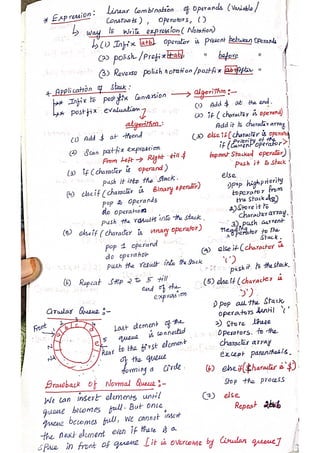 * Expression: Linear Combination of operands (Variable/
Constants), Operators, ()
↳ way to write expression (Notation)
↳ (1) Infix a+b operator is present between operands
(2) polish/Prefix +ab " before "
(3) Reverse polish notation/postfix ab+ After "
* Application of Stack:
** Infix to postfix Conversion
** postfix evaluation
algorithm:
(1) Add $ at the end
(2) Scan postfix expression
From Left → Right till $
(3) if (character is operand)
push it into the stack.
(4) else if (character is Binary operator)
pop 2 operands
do operation
push the result into the stack.
(5) else if (character is unary operator)
pop 1 operand
do operator
push the result into the stack
(6) Repeat Step 2 to 5 till
end of the
expression
Circular Queue:-
Front
Rear
Last element of the
queue is connected
to the first element
of the queue
forming a Circle.
Drawback of Normal Queue:-
We can insert elements until
queue becomes full. But once,
queue becomes full, we cannot insert
the next element even if there is a
space in front of queue [it is overcome by Circular queue]
Algorithm:-
(1) Add $ at the end.
(2) if (character is operand)
Add it to character array
(3) else if (character is operator)
if (Current operator >
topmost Stacked operator)
push it to stack
else
1) pop high priority
operator from
the stack
2) Store it to
Character array.
3) push current
operator to the
Stack.
(4) else if (character is
'(')
push it to the stack.
(5) else if (character is
')')
1) pop all the Stack
operators until '('
2) Store these
operators to the
character array
except parenthesis.
(6) else if (character is $)
Stop the process
(7) else
Repeat 2 to 6